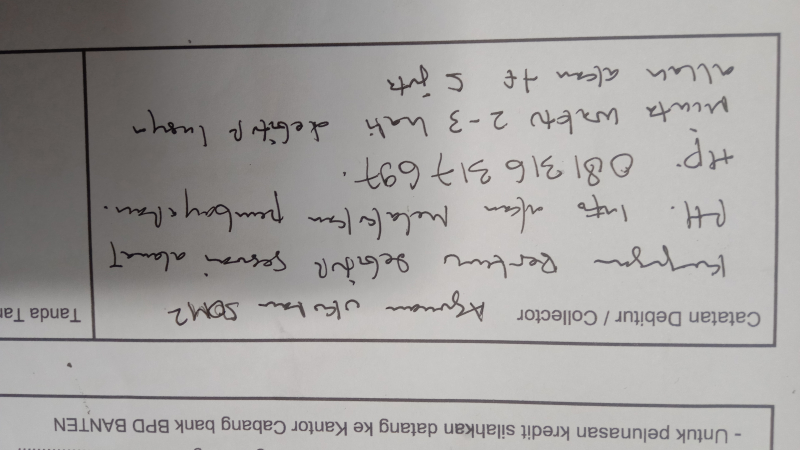 - Untuk pelunasan kredit silahkan datang ke Kantor Cabang bank BPD BANTEN
Catatan Debitur / Collector Agunan ukuran 50M2
Tanda Tan
Kunjungan Bertemu debitur sesuai alamat
RH. Info akan melakukan pembayaran.
Hp. 081 316 317 697.
Minta waktu 2-3 hari debitur
akan tf 5 juta